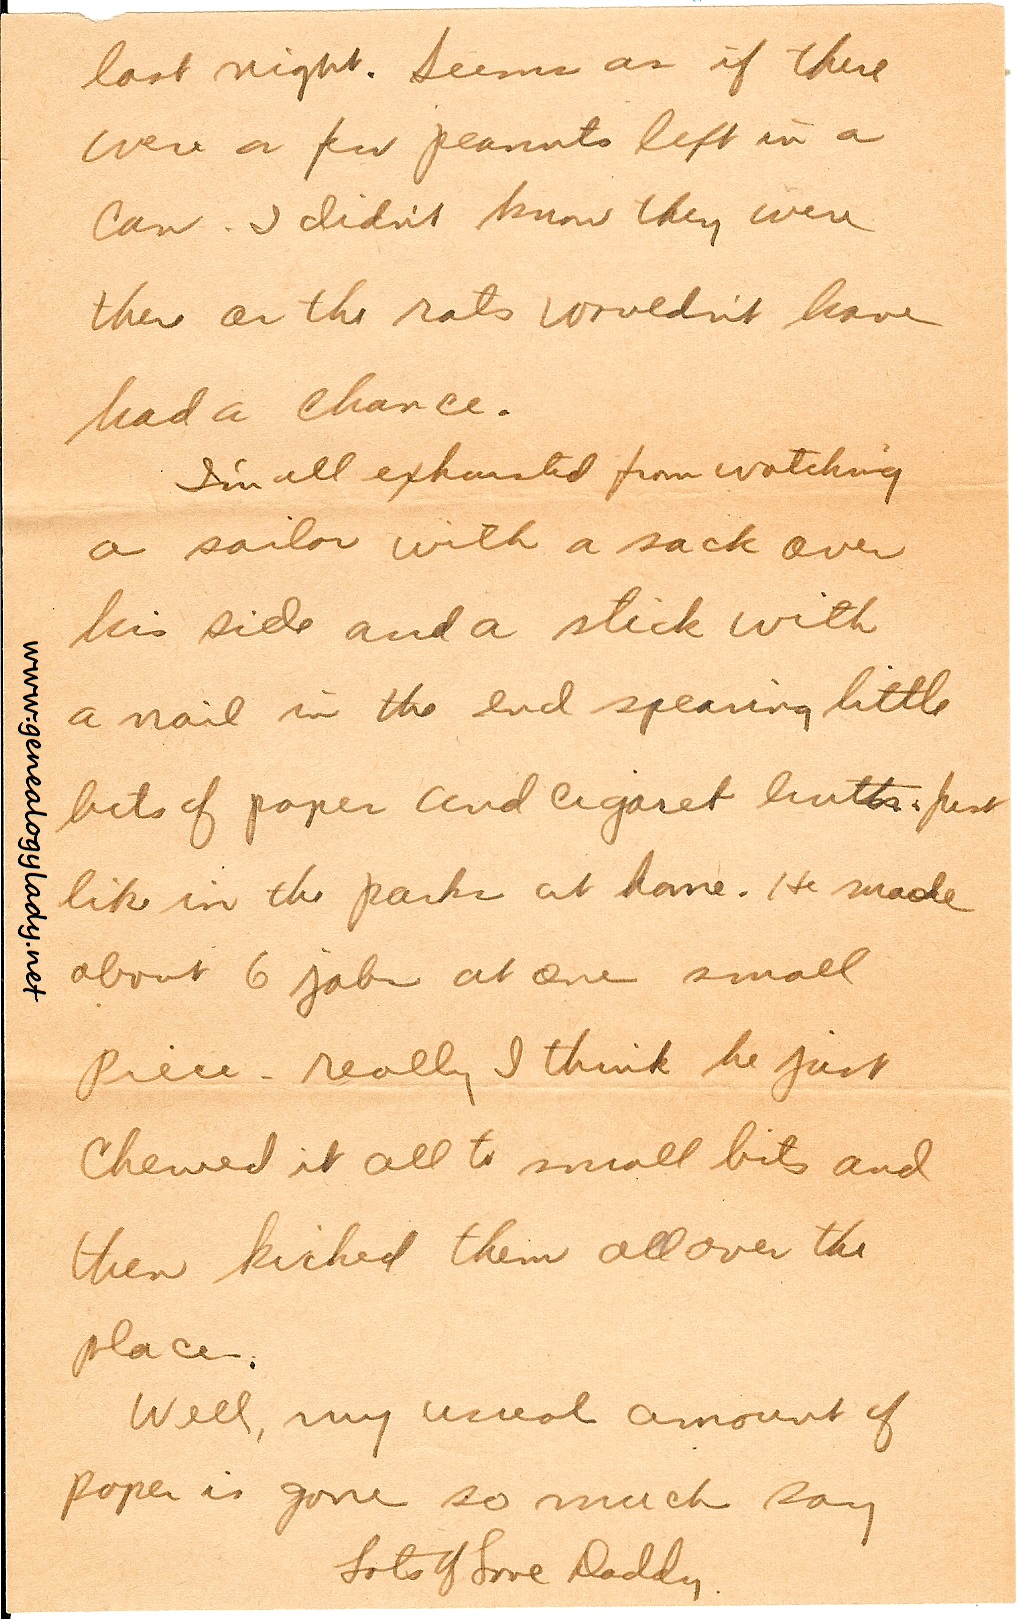 last night. Seems as if there
were a few peanuts left in a
can. I didn't know they were
there or the rats wouldn't have
had a chance.
I'm all exhausted from watching
a sailor with a sack over
his side and a stick with
a nail in the end spearing little
bits of paper and cigaret butts. just
like in the parks at home. He made
about 6 jabs at one small
piece - really I think he just
chewed it all to small bits and
then kicked them all over the
place.
Well, my usual amount of
paper is gone so much say
Lots of Love Daddy.
www.genealogylady.net